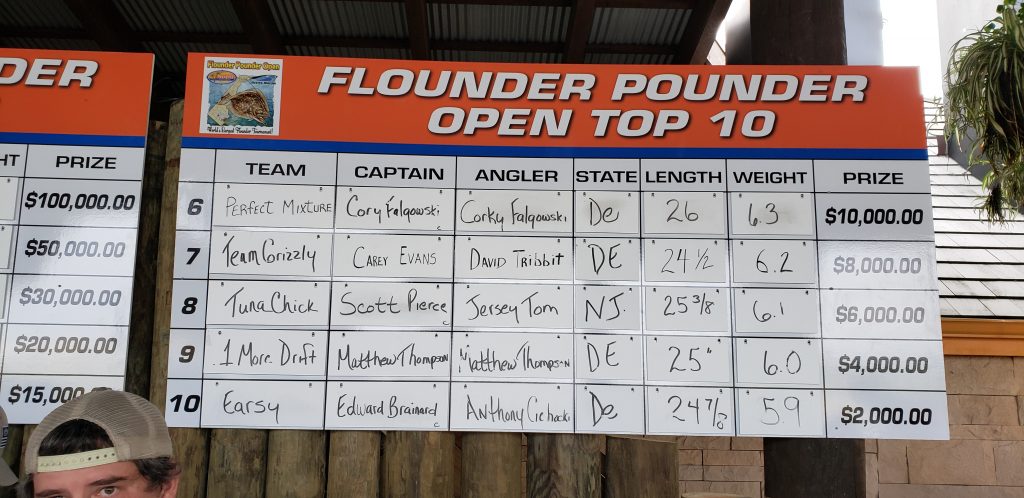 DER
HT PRIZE
$100,000.00
$50,000.00
$30,000.00
$20,000.00
$15,000
Flounder Pounder Open
World's Largest Flounder Tournament!
FLOUNDER POUNDER
OPEN TOP 10
TEAM CAPTAIN ANGLER STATE LENGTH WEIGHT PRIZE
6 PERFECT MIXTURE Cory Falgowski Corky Falgowski De 26 6.3 $10,000.00
7 Team Grizzly CAREY EVANS DAVID Tribbit DE 24 1/2 6.2 $8,000.00
8 Tuna Chick Scott Pierce Jersey Tom NJ. 25 3/8 6.1 $6,000.00
9 1 More Drift Matthew Thompson Matthew Thompson DE 25" 6.0 $4,000.00
10 Earsy Edward Brainard Anthony De 24 7/8 5.9 $2,000.00